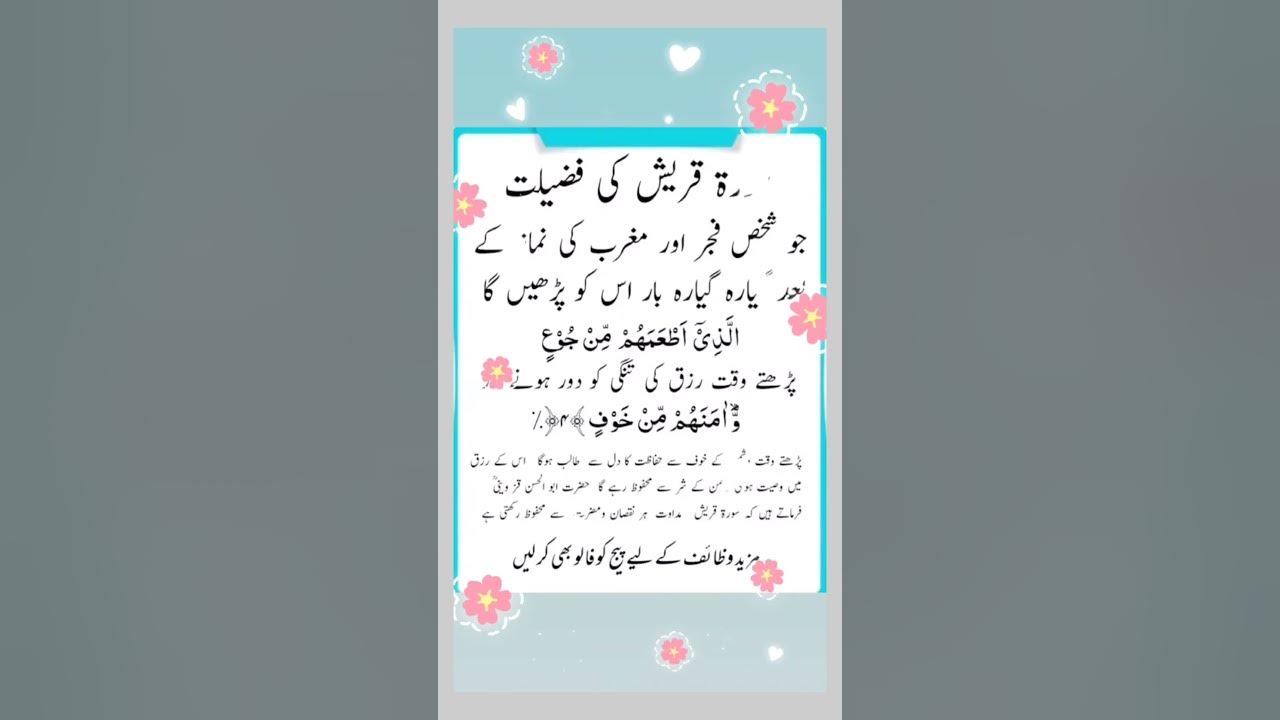 قریش کی فضیلت
جو شخص فجر اور مغرب کی کے
گیارہ بار اس کو پڑھیں گا
الَّذِیْۤ اَطْعَمَهُمْ مِّنْ جُوْعٍ
پڑھتے وقت رزق کی تنگی کو دور ہونے
وَّ اٰمَنَهُمْ مِّنْ خَوْفٍ ﴿۴﴾
پڑھتے وقت کے خوف سے حفاظت کا دل سے طالب ہوگا اس کے رزق
میں وصیت کے شر سے محفوظ رہے گا حضرت ابو الحسن قزوینیؒ
فرماتے ہیں کہ سورۃ قریش مداوت ہر نقصان سے محفوظ رکھتی ہے
مزید وظائف کے لیے پیج کو فالو بھی کر لیں